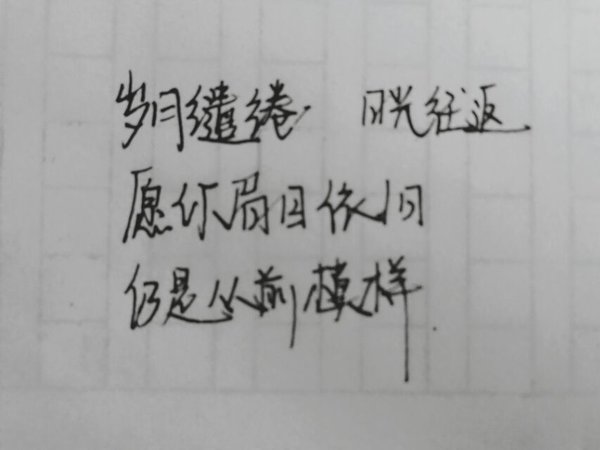 岁月缱绻 日光往返
愿你眉目依旧
仍是从前模样